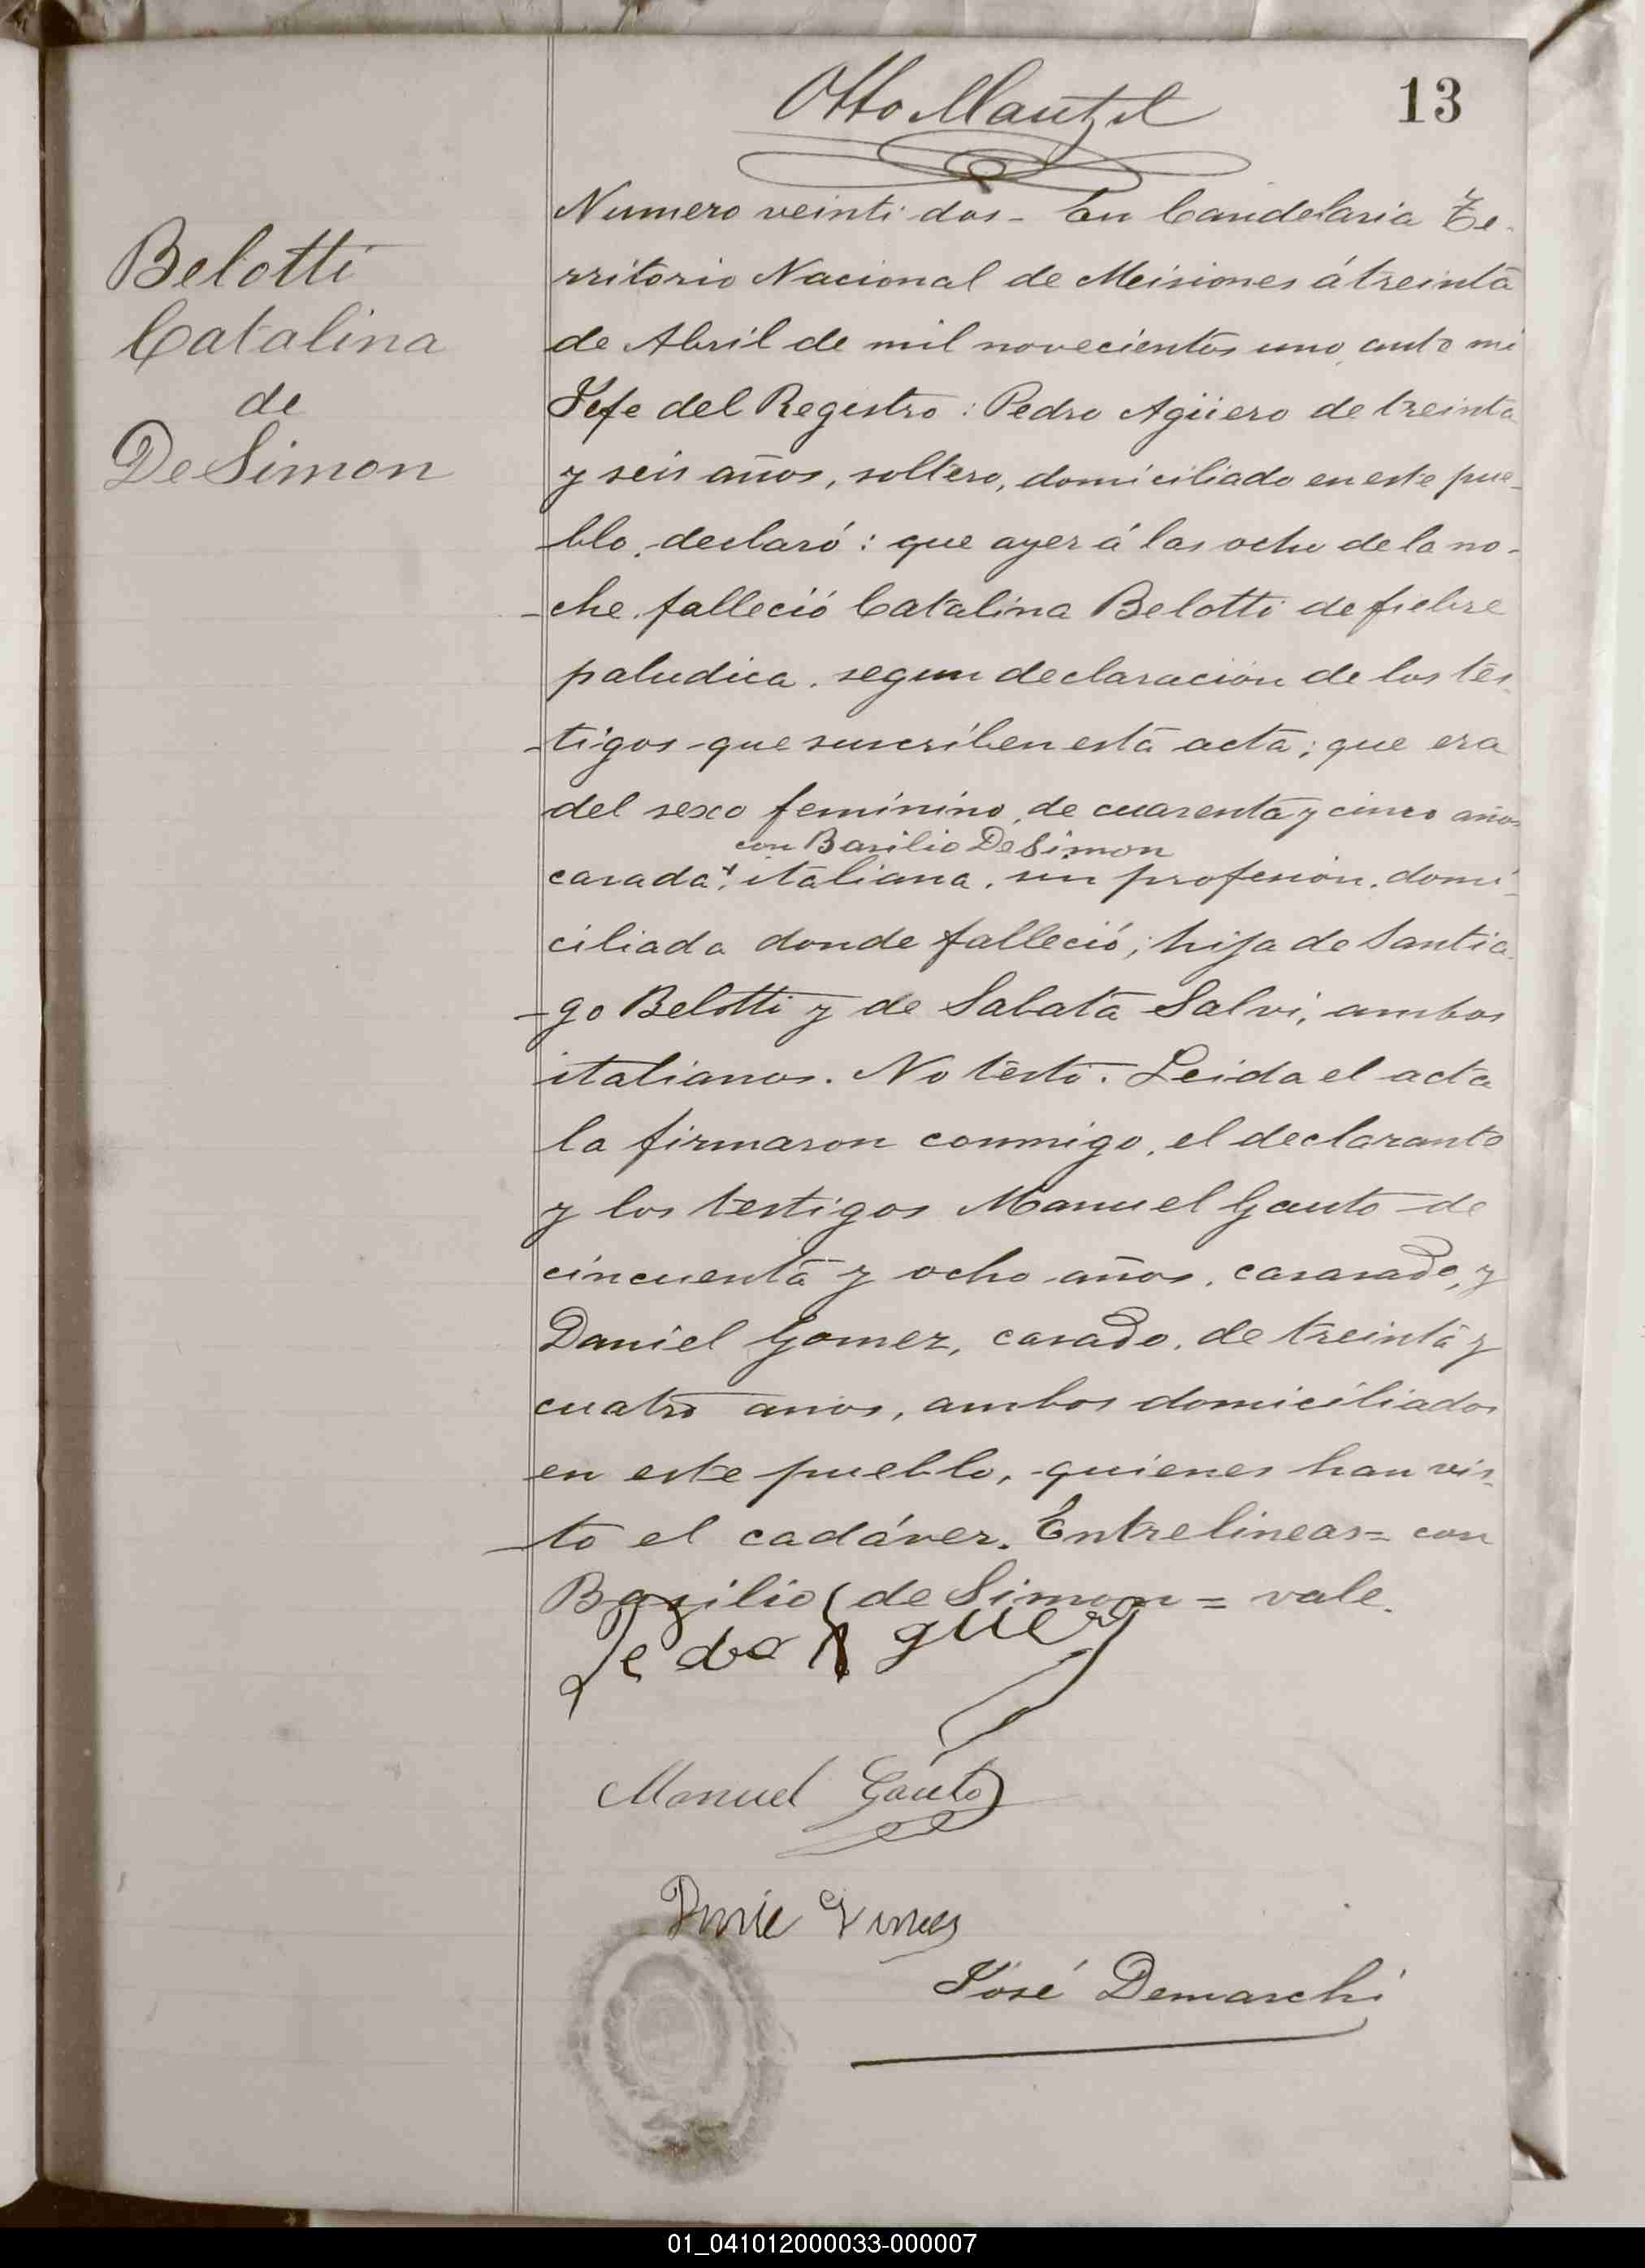 Otto Mantzel
13
Belotti
Catalina
de
De Simon
Numero veinti dos - En Candelaria Te-
rritorio Nacional de Meisiones á treinta
de Abril de mil novecientos uno, ante mi
Jefe del Registro: Pedro Agüero de treinta
y seis años, soltero, domiciliado en este pue-
blo, declaró: que ayer á las ocho de la no-
-che falleció Catalina Belotti de fiebre
paludica, segun declaración de los tes-
-tigos que suscriben esta acta; que era
del sexo feminino, de cuarenta y cinco años
con Basilio De Simon
casada+, italiana, sin profesión, domi-
ciliada donde falleció; hija de Santia-
-go Belotti y de Sabata Salvi, ambos
italianos. No testó. Leida el acta
la firmaron conmigo, el declarante
y los testigos Manuel Gauto de
cincuenta y ocho años, casasado, y
Daniel Gomez, casado, de treinta y
cuatro anos, ambos domiciliados
en este pueblo, quienes han vis-
-to el cadáver. Entrelineas = con
Bazilio de Simon = vale.
Pedro Aguero
Manuel Gauto
José Demarchi
01_041012000033-000007